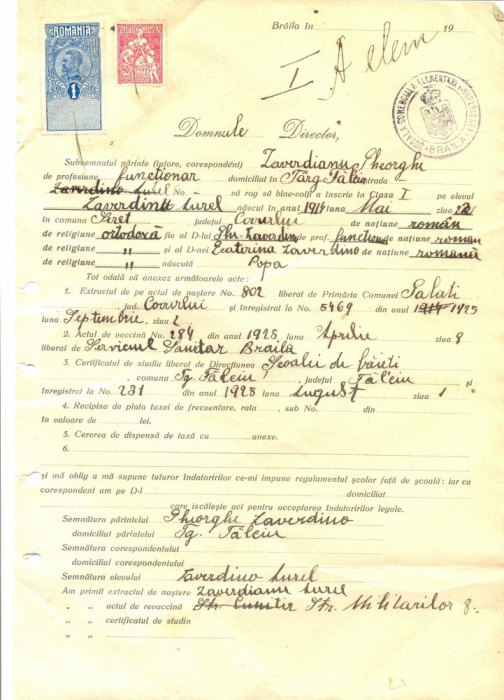 ROMANIA
1
Brăila în 19
I A elem
ȘCOALA COMERCIALĂ ELEMENTARĂ BRĂILA
Domnule Director,
Subsemnatul părinte (tutore, corespondent) Zaverdianu Gheorghi
de profesiune funcționar domiciliat în Târg Fălciu strada
Zaverdino Aurel No. vă rog să bine-voiți a înscrie în Clasa I pe elevul
Zaverdino Aurel născut în anul 1914 luna Mai ziua 22
în comuna Siret județul Covurlui de națiune român
de religiune ortodoxă fiu al D-lui Gh. Zaverdino de prof. funcțion de națiune roman
de religiune " și al D-nei Ecaterina Zaverdino de națiune romană
de religiune " născulă Popa
Tot odală vă anexez următoarele acte:
1. Extractul de pe actul de naștere No. 802 liberat de Primăria Comunei Galați
, jud. Covurlui și înregistrat la No. 5469 din anul 1914 1925
luna Septembrie, ziua 2
2. Actul de vaccină No. 284 din anul 1925 luna Aprilie ziua 8
liberat de Serviciul Sanitar Braila
3. Certificatul de studiu liberat de Direcțiunea Școalii de băieți
, comuna Tg. Fălciu, județul Fălciu și
înregistrat la No. 231 din anul 1925 luna August ziua 1
4. Recipisa de plata taxei de frecventare, rata , sub No. din
în valoare de lei.
5. Cererea de dispensă de taxă cu anexe.
6.
și mă oblig a mă supune tuturor îndatoririlor ce-mi impune regulamentul școlar față de școală: iar ca
corespondent am pe D-l domiciliat
care iscălește aci pentru acceptarea îndutoririlor legale.
Semnătura părintelui Gheorghi Zaverdino
domiciliul părintelui Tg. Fălciu
Semnătura corespondentului
domiciliul corespondentului
Semnătura elevului Zaverdino Aurel
Am primit extractul de naștere Zaverdianu Aurel
" " actul de reoaccină Str. Militarilor 8.
" " certificatul de studiu
" "